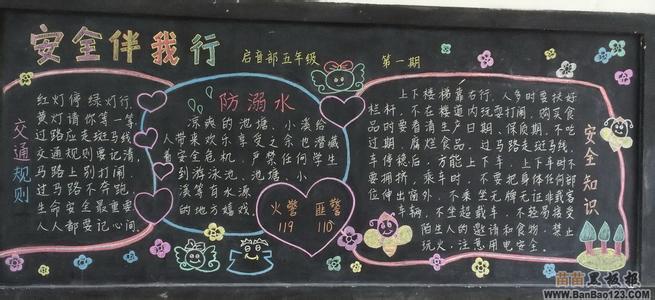 安全伴我行
启音部五年级
第一期
交通规则
红灯停 绿灯行,
黄灯请你等一等,
过路应走斑马线,
交通规则要记清,
马路上别打闹,
过马路不奔跑,
生命安全最重要,
人人都要记心间。
防溺水
凉爽的池塘、小溪给
人带来欢乐享受之余也潜藏
着安全危机,严禁任何学生
到游泳池、池塘、小
溪等有水源
的地方嬉戏。
火警
119
匪警
110
安全知识
上下楼梯靠右行,人多时要扶好
栏杆,不在楼道内玩耍打闹。购买食
品时要看清生产日期、保质期,不吃
过期、腐烂食品。过马路走斑马线。
车停稳后,方能上下车,上下车时不
要拥挤,乘车时,不要把身体任何部
位伸出窗外,不乘坐无牌无证非载客
车辆,不坐超载车,不轻易接受
陌生人的邀请和食物,禁止
玩火,注意用电安全。
苗苗黑板报
www.BanBao123.com